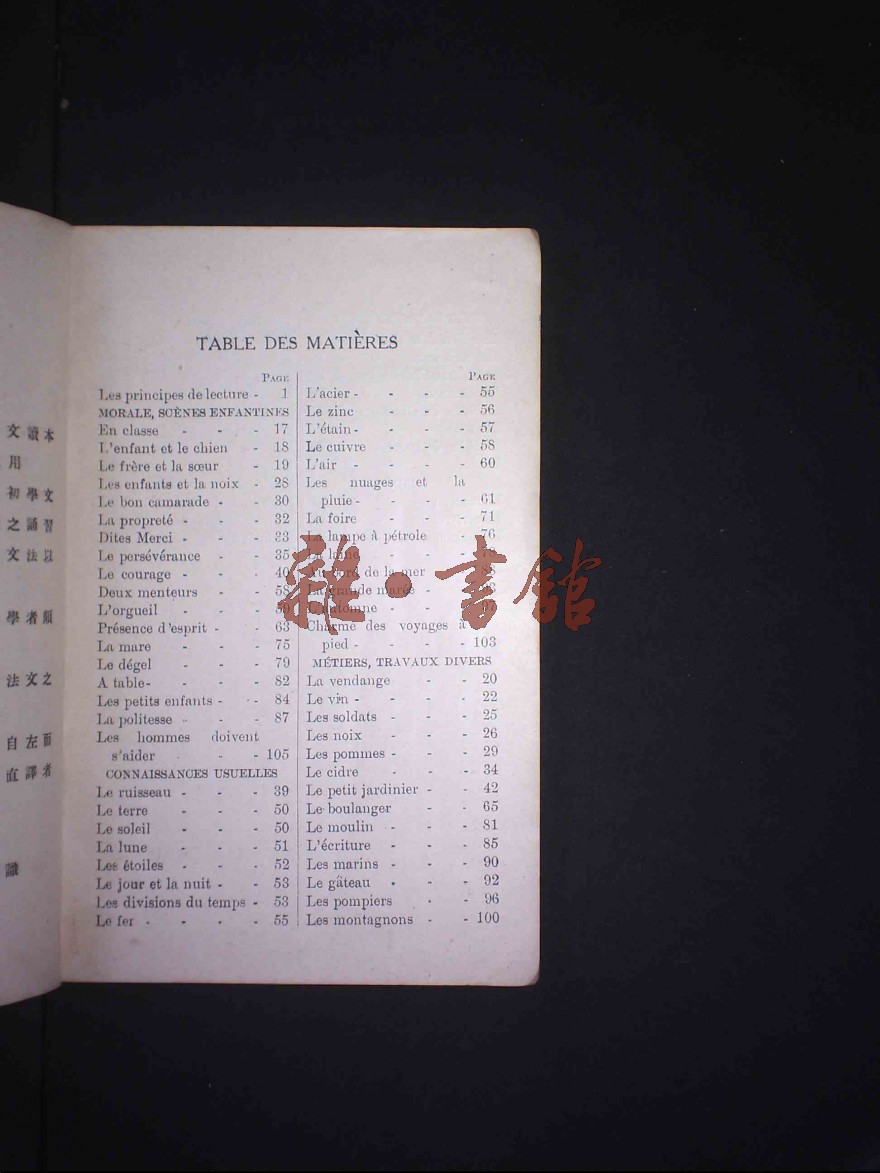 TABLE DES MATIÈRES
PAGE
Les principes de lecture - 1
MORALE, SCÈNES ENFANTINES
En classe - - - 17
L'enfant et le chien - 18
Le frère et la sœur - 19
Les enfants et la noix - 28
Le bon camarade - - 30
La propreté - - - 32
Dites Merci - - - 33
Le persévérance - - 35
Le courage - - - 40
Deux menteurs - - 58
L'orgueil - - - 59
Présence d'esprit - - 63
La mare - - - 75
Le dégel - - - 79
A table - - - - 82
Les petits enfants - - 84
La politesse - - - 87
Les hommes doivent
s'aider - - 105
CONNAISSANCES USUELLES
Le ruisseau - - - 39
Le terre - - - 50
Le soleil - - - 50
La lune - - - 51
Les étoiles - - - 52
Le jour et la nuit - - 53
Les divisions du temps - 53
Le fer - - - - 55
PAGE
L'acier - - - - 55
Le zinc - - - 56
L'étain - - - - 57
Le cuivre - - - 58
L'air - - - - 60
Les nuages et la
pluie - - - - 61
La foire - - - 71
La lampe à pétrole - 76
La laine - - -
Au bord de la mer - 88
La grande marée -
L'automne - - - 97
Charme des voyages à
pied - - - - 103
MÉTIERS, TRAVAUX DIVERS
La vendange - - 20
Le vin - - - - 22
Les soldats - - - 25
Les noix - - - 26
Les pommes - - - 29
Le cidre - - - 34
Le petit jardinier - - 42
Le boulanger - - 65
Le moulin - - - 81
L'écriture - - - 85
Les marins - - - 90
Le gâteau - - - 92
Les pompiers - - 96
Les montagnons - - 100
本讀文
用
文學初
習誦之
以法文
須者學
之文法
而左自
者譯直
識
雜·書館